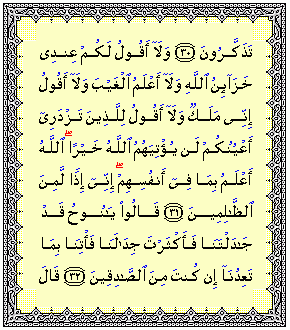 تَذَكَّرُونَ ﴿٣٠﴾ وَلَآ أَقُولُ لَكُمْ عِندِى
خَزَآئِنُ ٱللَّهِ وَلَآ أَعْلَمُ ٱلْغَيْبَ وَلَآ أَقُولُ
إِنِّى مَلَكٌ وَلَآ أَقُولُ لِلَّذِينَ تَزْدَرِىٓ
أَعْيُنُكُمْ لَن يُؤْتِيَهُمُ ٱللَّهُ خَيْرًا ۖ ٱللَّهُ
أَعْلَمُ بِمَا فِىٓ أَنفُسِهِمْ ۖ إِنِّىٓ إِذًا لَّمِنَ
ٱلظَّـٰلِمِينَ ﴿٣١﴾ قَالُوا۟ يَـٰنُوحُ قَدْ
جَـٰدَلْتَنَا فَأَكْثَرْتَ جِدَٰلَنَا فَأْتِنَا بِمَا
تَعِدُنَآ إِن كُنتَ مِنَ ٱلصَّـٰدِقِينَ ﴿٣٢﴾ قَالَ